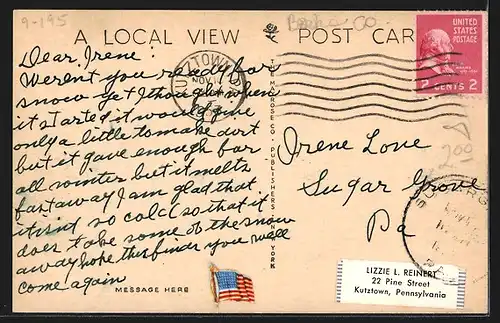 9-195
Berks Co
A LOCAL VIEW POST CAR
UNITED STATES POSTAGE
2 CENTS 2
KUTZTOWN
NOV
Dear Irene:
Weren't you ready for
snow yet I thought when
it started it would give
only a little to make dirt
but it gave enough for
all winter but it melts
fast away I am glad that
it isnt so cold so that it
does take some of the snow
away hope this finds you well
come again
THE MELROSE CO., PUBLISHERS, NEW YORK
Irene Love
Sugar Grove
Pa
200
MESSAGE HERE
LIZZIE L. REINERT
22 Pine Street
Kutztown, Pennsylvania